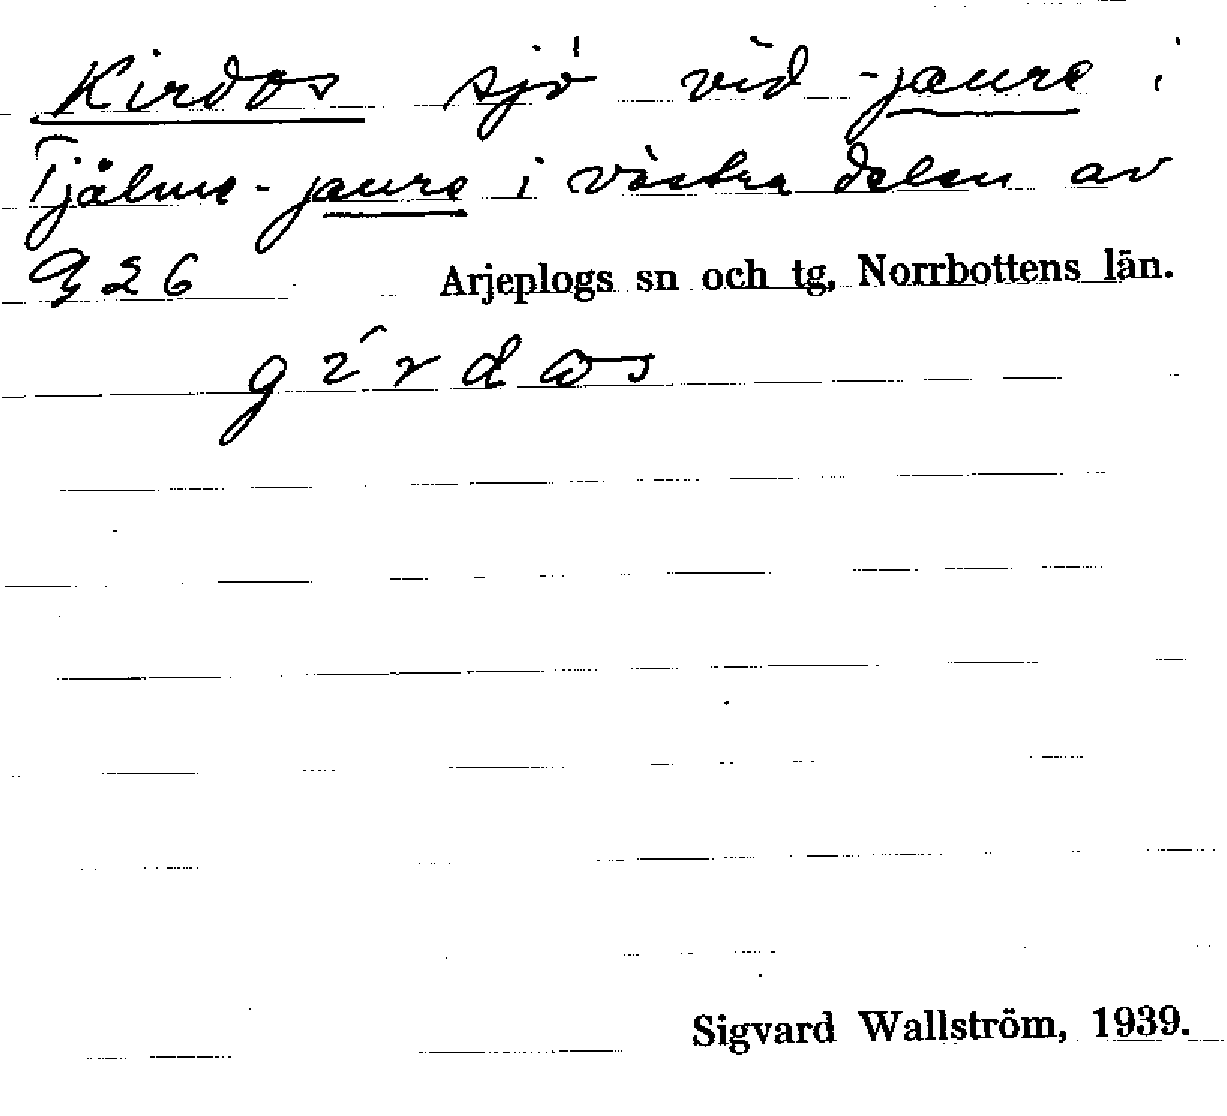 Kirdos sjö vid -jaure i
Tjålme-jaure i västra delen av
926 Arjeplogs sn och tg, Norrbottens län.
Sigvard Wallström, 1939.